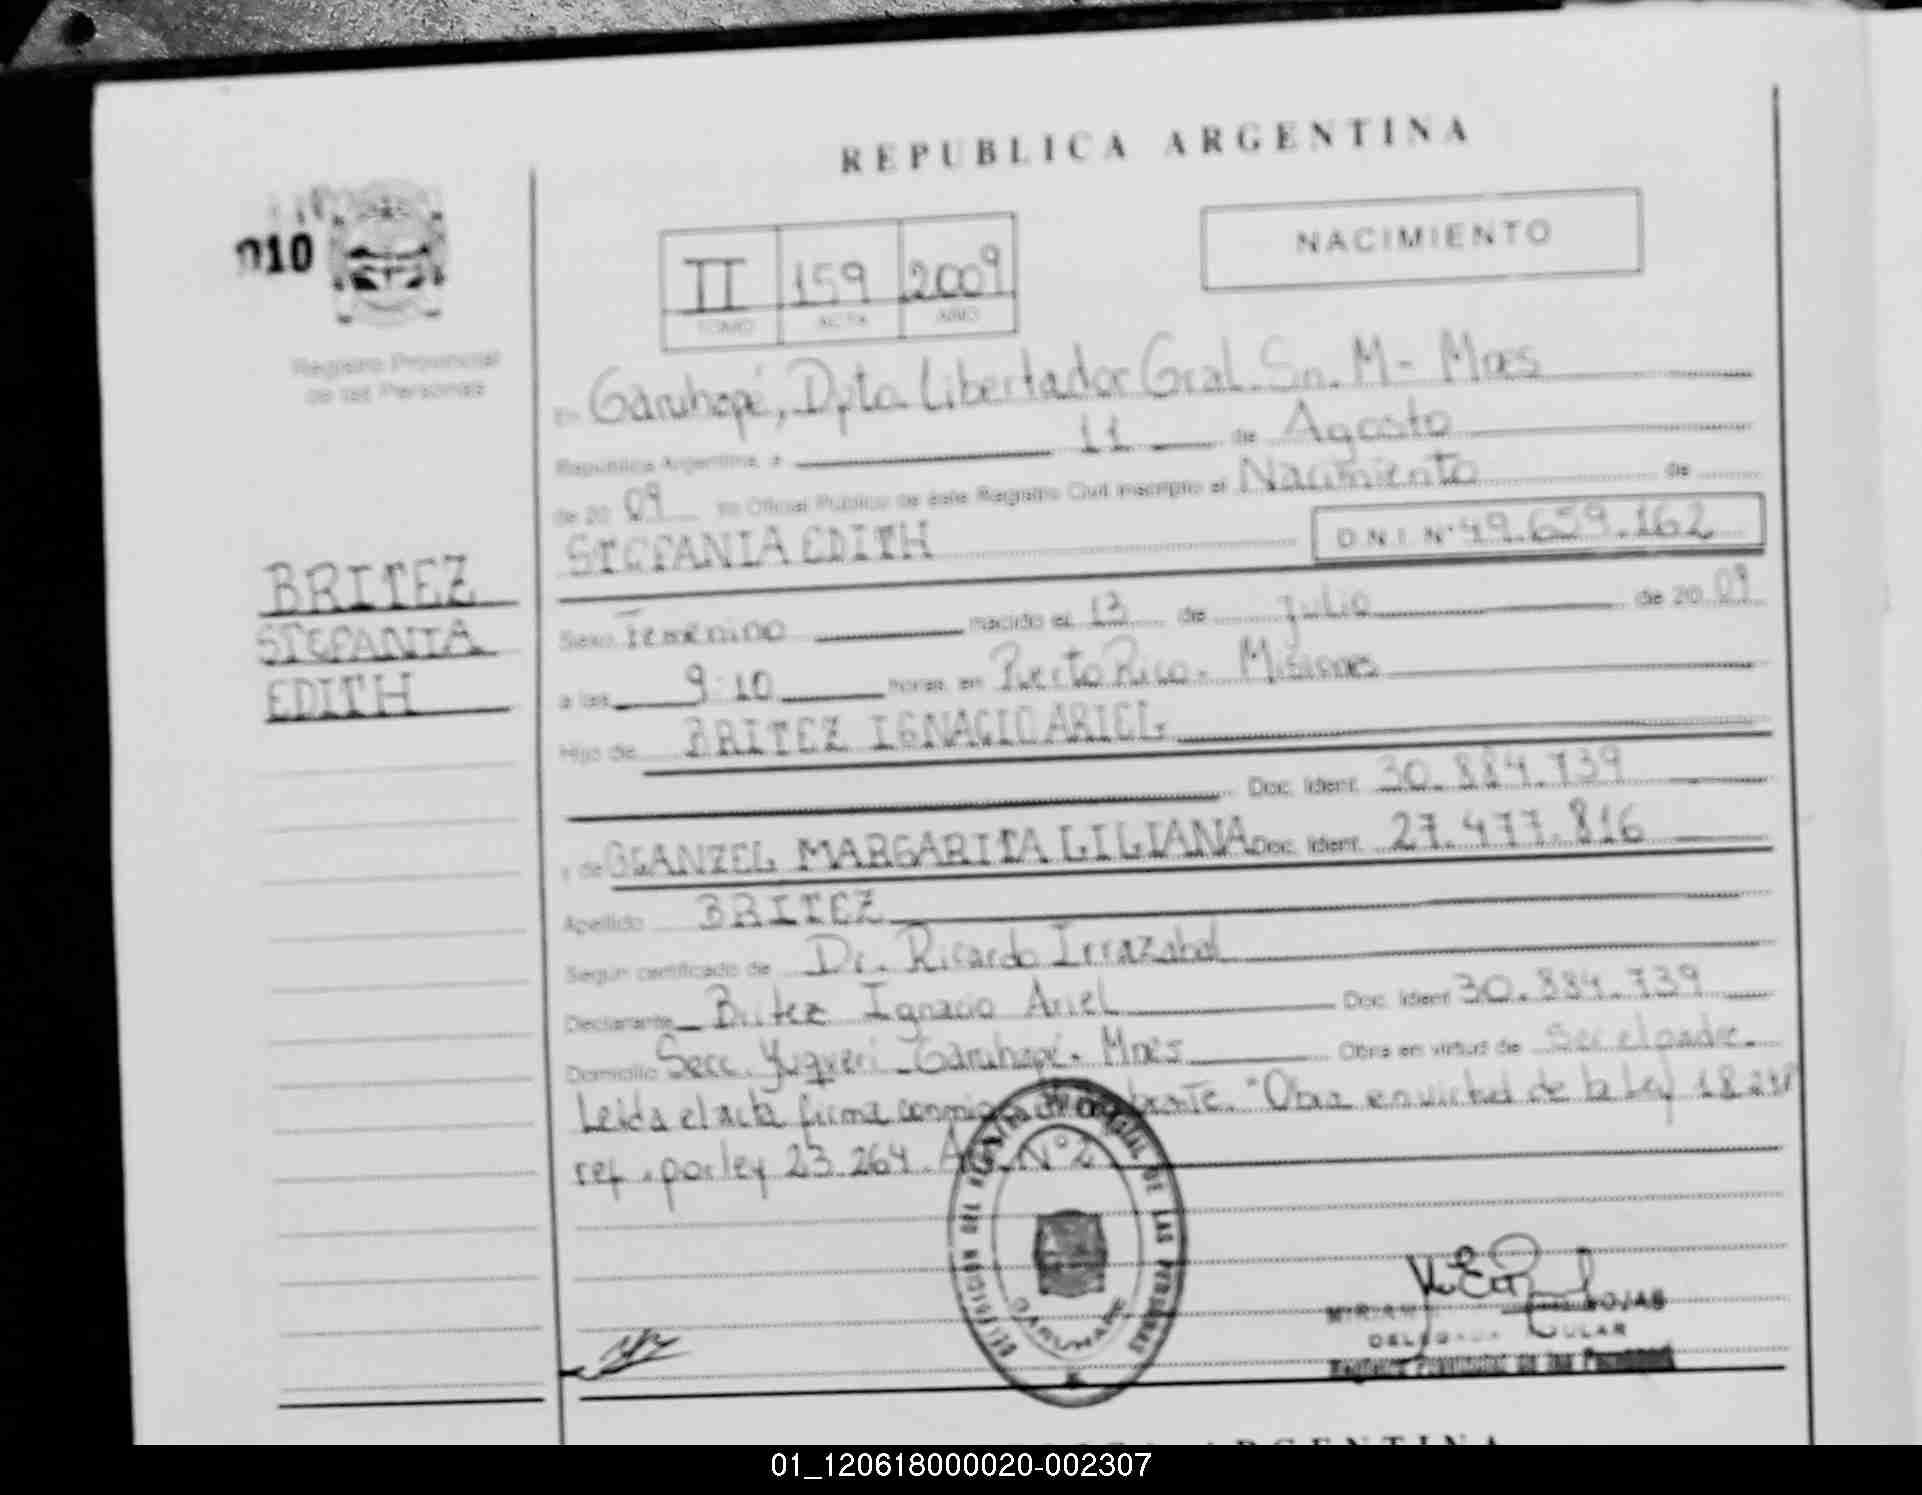 REPUBLICA ARGENTINA
010
NACIMIENTO
II 159 2009
TOMO ACTA AÑO
Registro Provincial
de las Personas
En Garuhapé, Dpto. Libertador Gral. Sn. M - Mnes
República Argentina, a 11 de Agosto
de 20 09 yo Oficial Público de éste Registro Civil inscripto el Nacimiento de
STEFANIA EDITH D.N.I. Nº 49.659.162
BRITEZ
STEFANIA
EDITH
Sexo Femenino nacido el 13 de Julio de 20 09
a las 9:10 horas en Puerto Rico. Misiones
Hijo de BRITEZ IGNACIO ARIEL
Doc. Ident. 30.884.739
y de GLANZEL MARGARITA LILIANA Doc. Ident. 27.477.816
Apellido BRITEZ
Según certificado de Dr. Ricardo Irrazabal
Declarante Britez Ignacio Ariel Doc. Ident 30.884.739
Domicilio Secc. Yuqueri - Garuhapé. Mnes Obra en virtud de Ser el padre.
Leída el acta firma conmigo "Obra en virtud de la Ley 18.248
ref. por ley 23.264. Nº 2
DELEGACION DEL REGISTRO PROVINCIAL DE LAS PERSONAS
GARUHAPE
MIRIAM ROJAS
DELEGADA TITULAR
Registro Provincial de las Personas
ARGENTINA
01_120618000020-002307